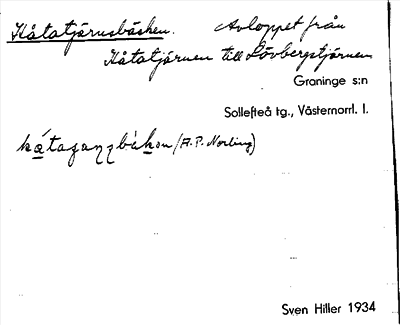 Kåtatjärnsbäcken. Avloppet från
Kåtatjärnen till Lövbergstjärnen
Graninge s:n
Sollefteå tg., Västernorrl. l.
(A. P. Norling)
Sven Hiller 1934